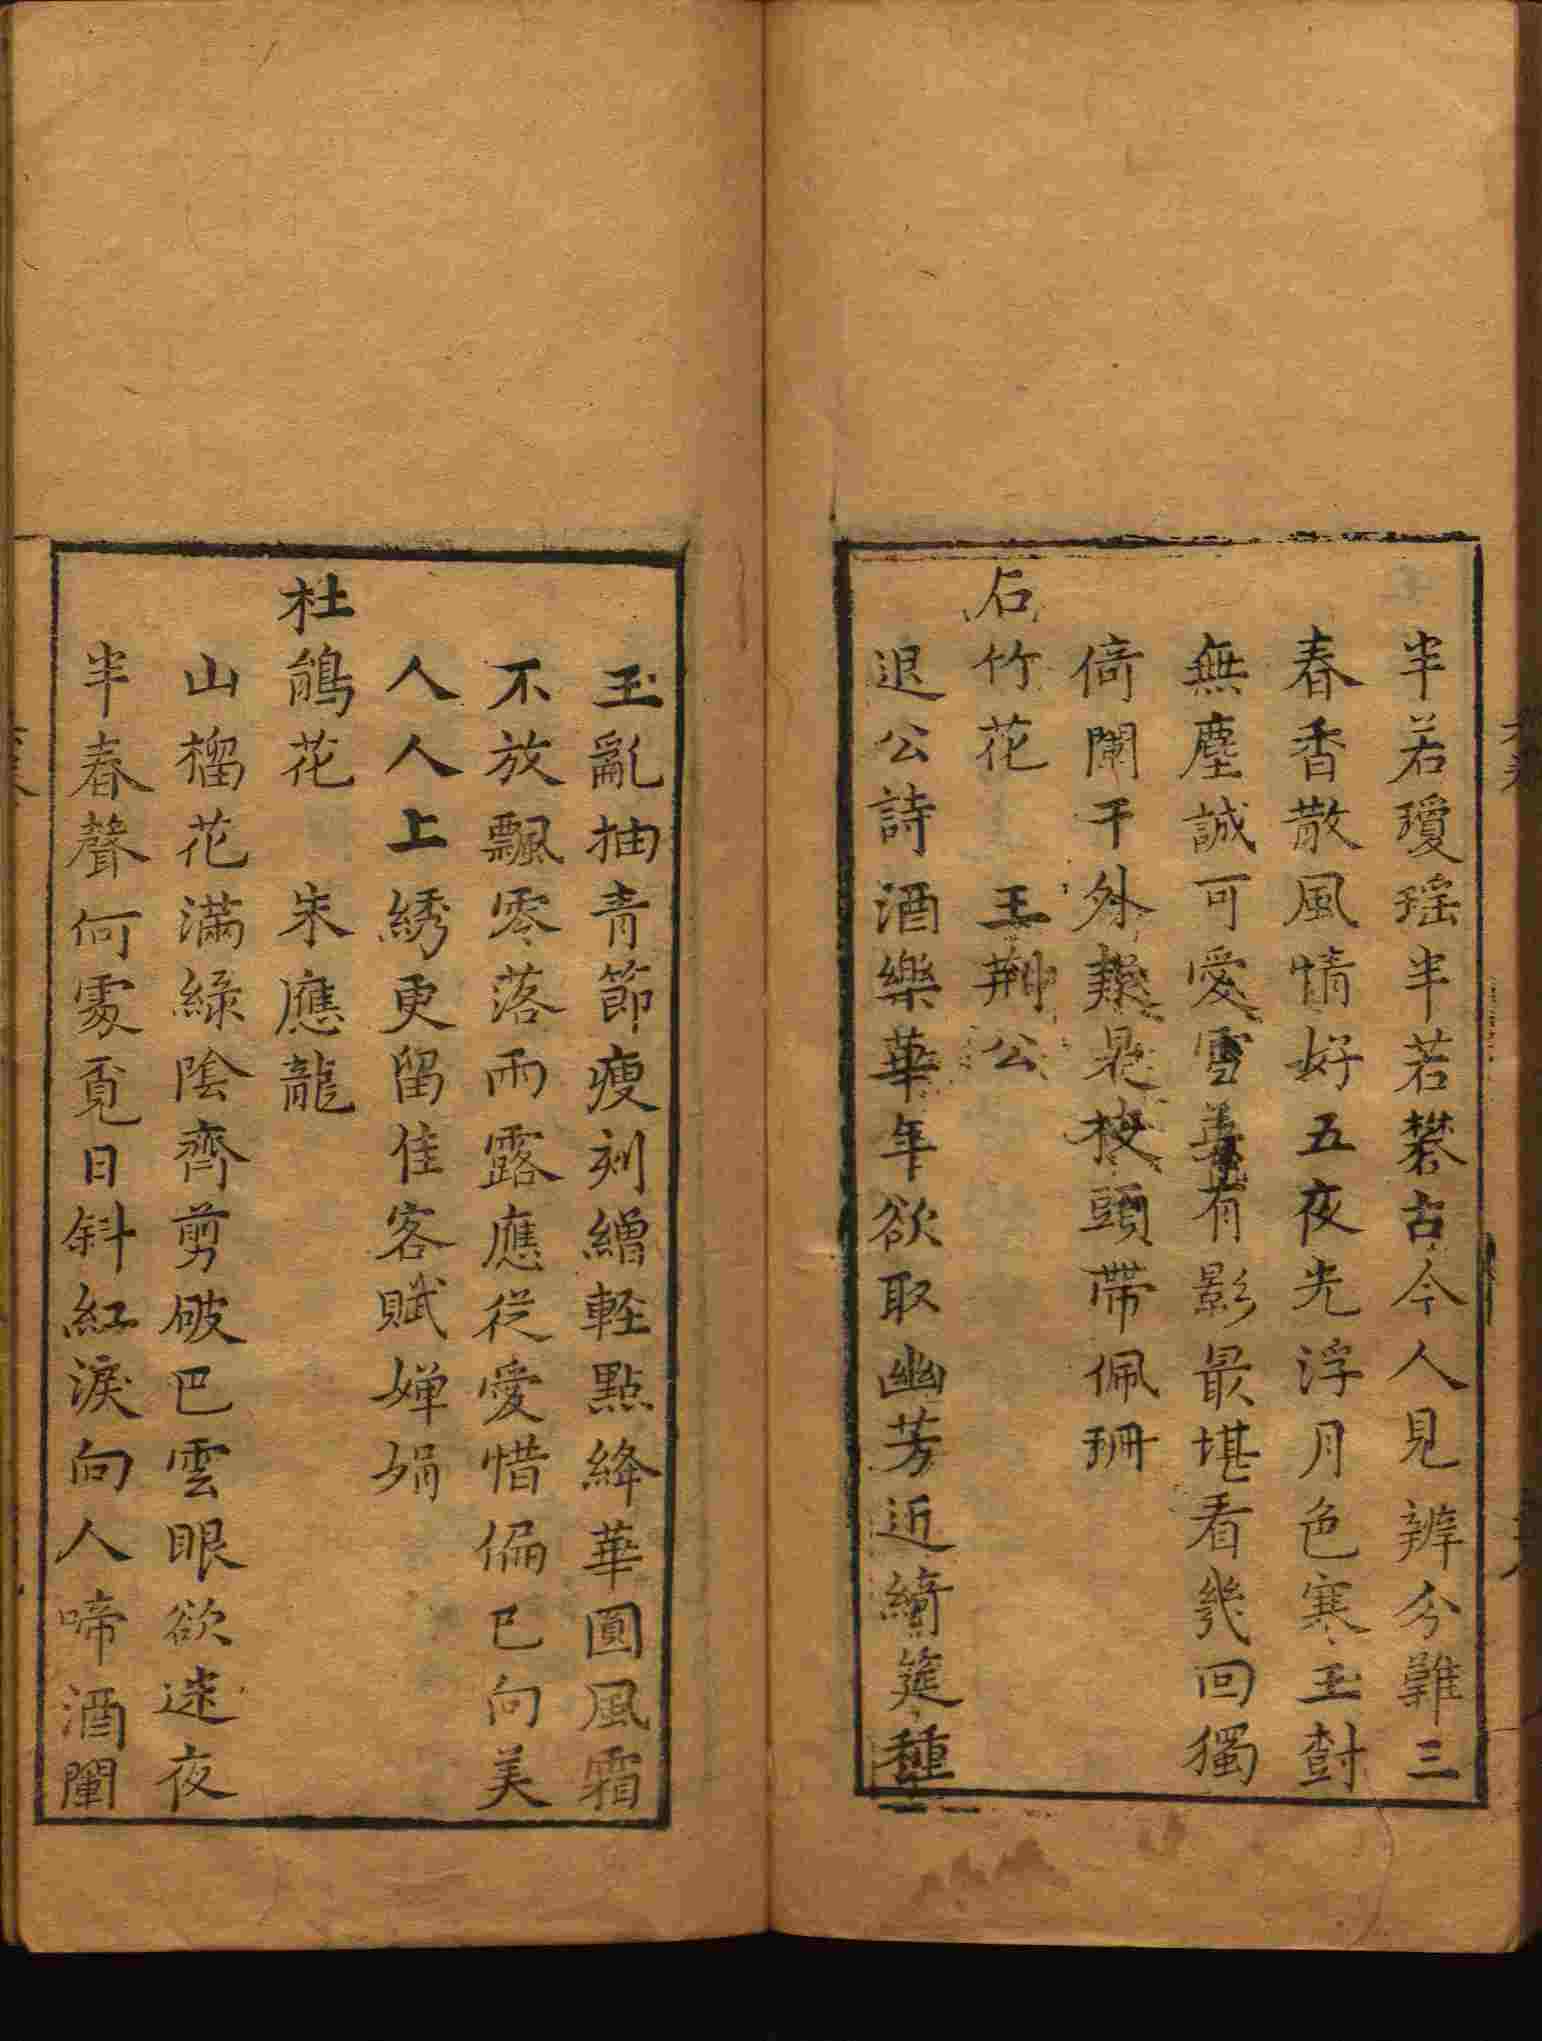 半若瓊瑶半若礬古今人見辨分難三
春香散風情好五夜光浮月色寒玉樹
無塵誠可愛雪姜有影最堪看幾回獨
倚闌干外疑是梅頭帶佩珊
石竹花　王荆公
退公詩酒樂華年欲取幽芳近綺筵種
玉亂抽青節瘦刻繒軽點絳華圓風霜
不放飄零落雨露應從愛惜偏已向美
人人上綉更留佳客賦嬋娟
杜鵑花　朱應龍
山榴花滿緑陰齊剪破巴雲眼欲迷夜
半春聲何處覓日斜紅淚向人啼酒闌